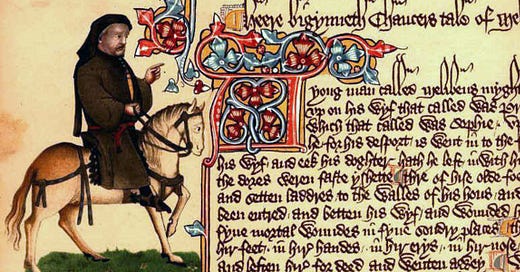 Heere bigynneth Chaucers tale of Me
A yong man called Melibeus mygh
vp on his wyf that called was
which that called was Sophie
he for his desport is went in to the
his wyf and eek his doghter hath he left in with h
the dores weren faste yshette Thre of hise olde foo
and setten laddres to the walles of his hous and
been entred and betten his wyf and wounded
fyue mortal woundes in fyue sondry places this
hir feet in hir handes in hir erys in hir nose
and leften hir for deed and wenten awey